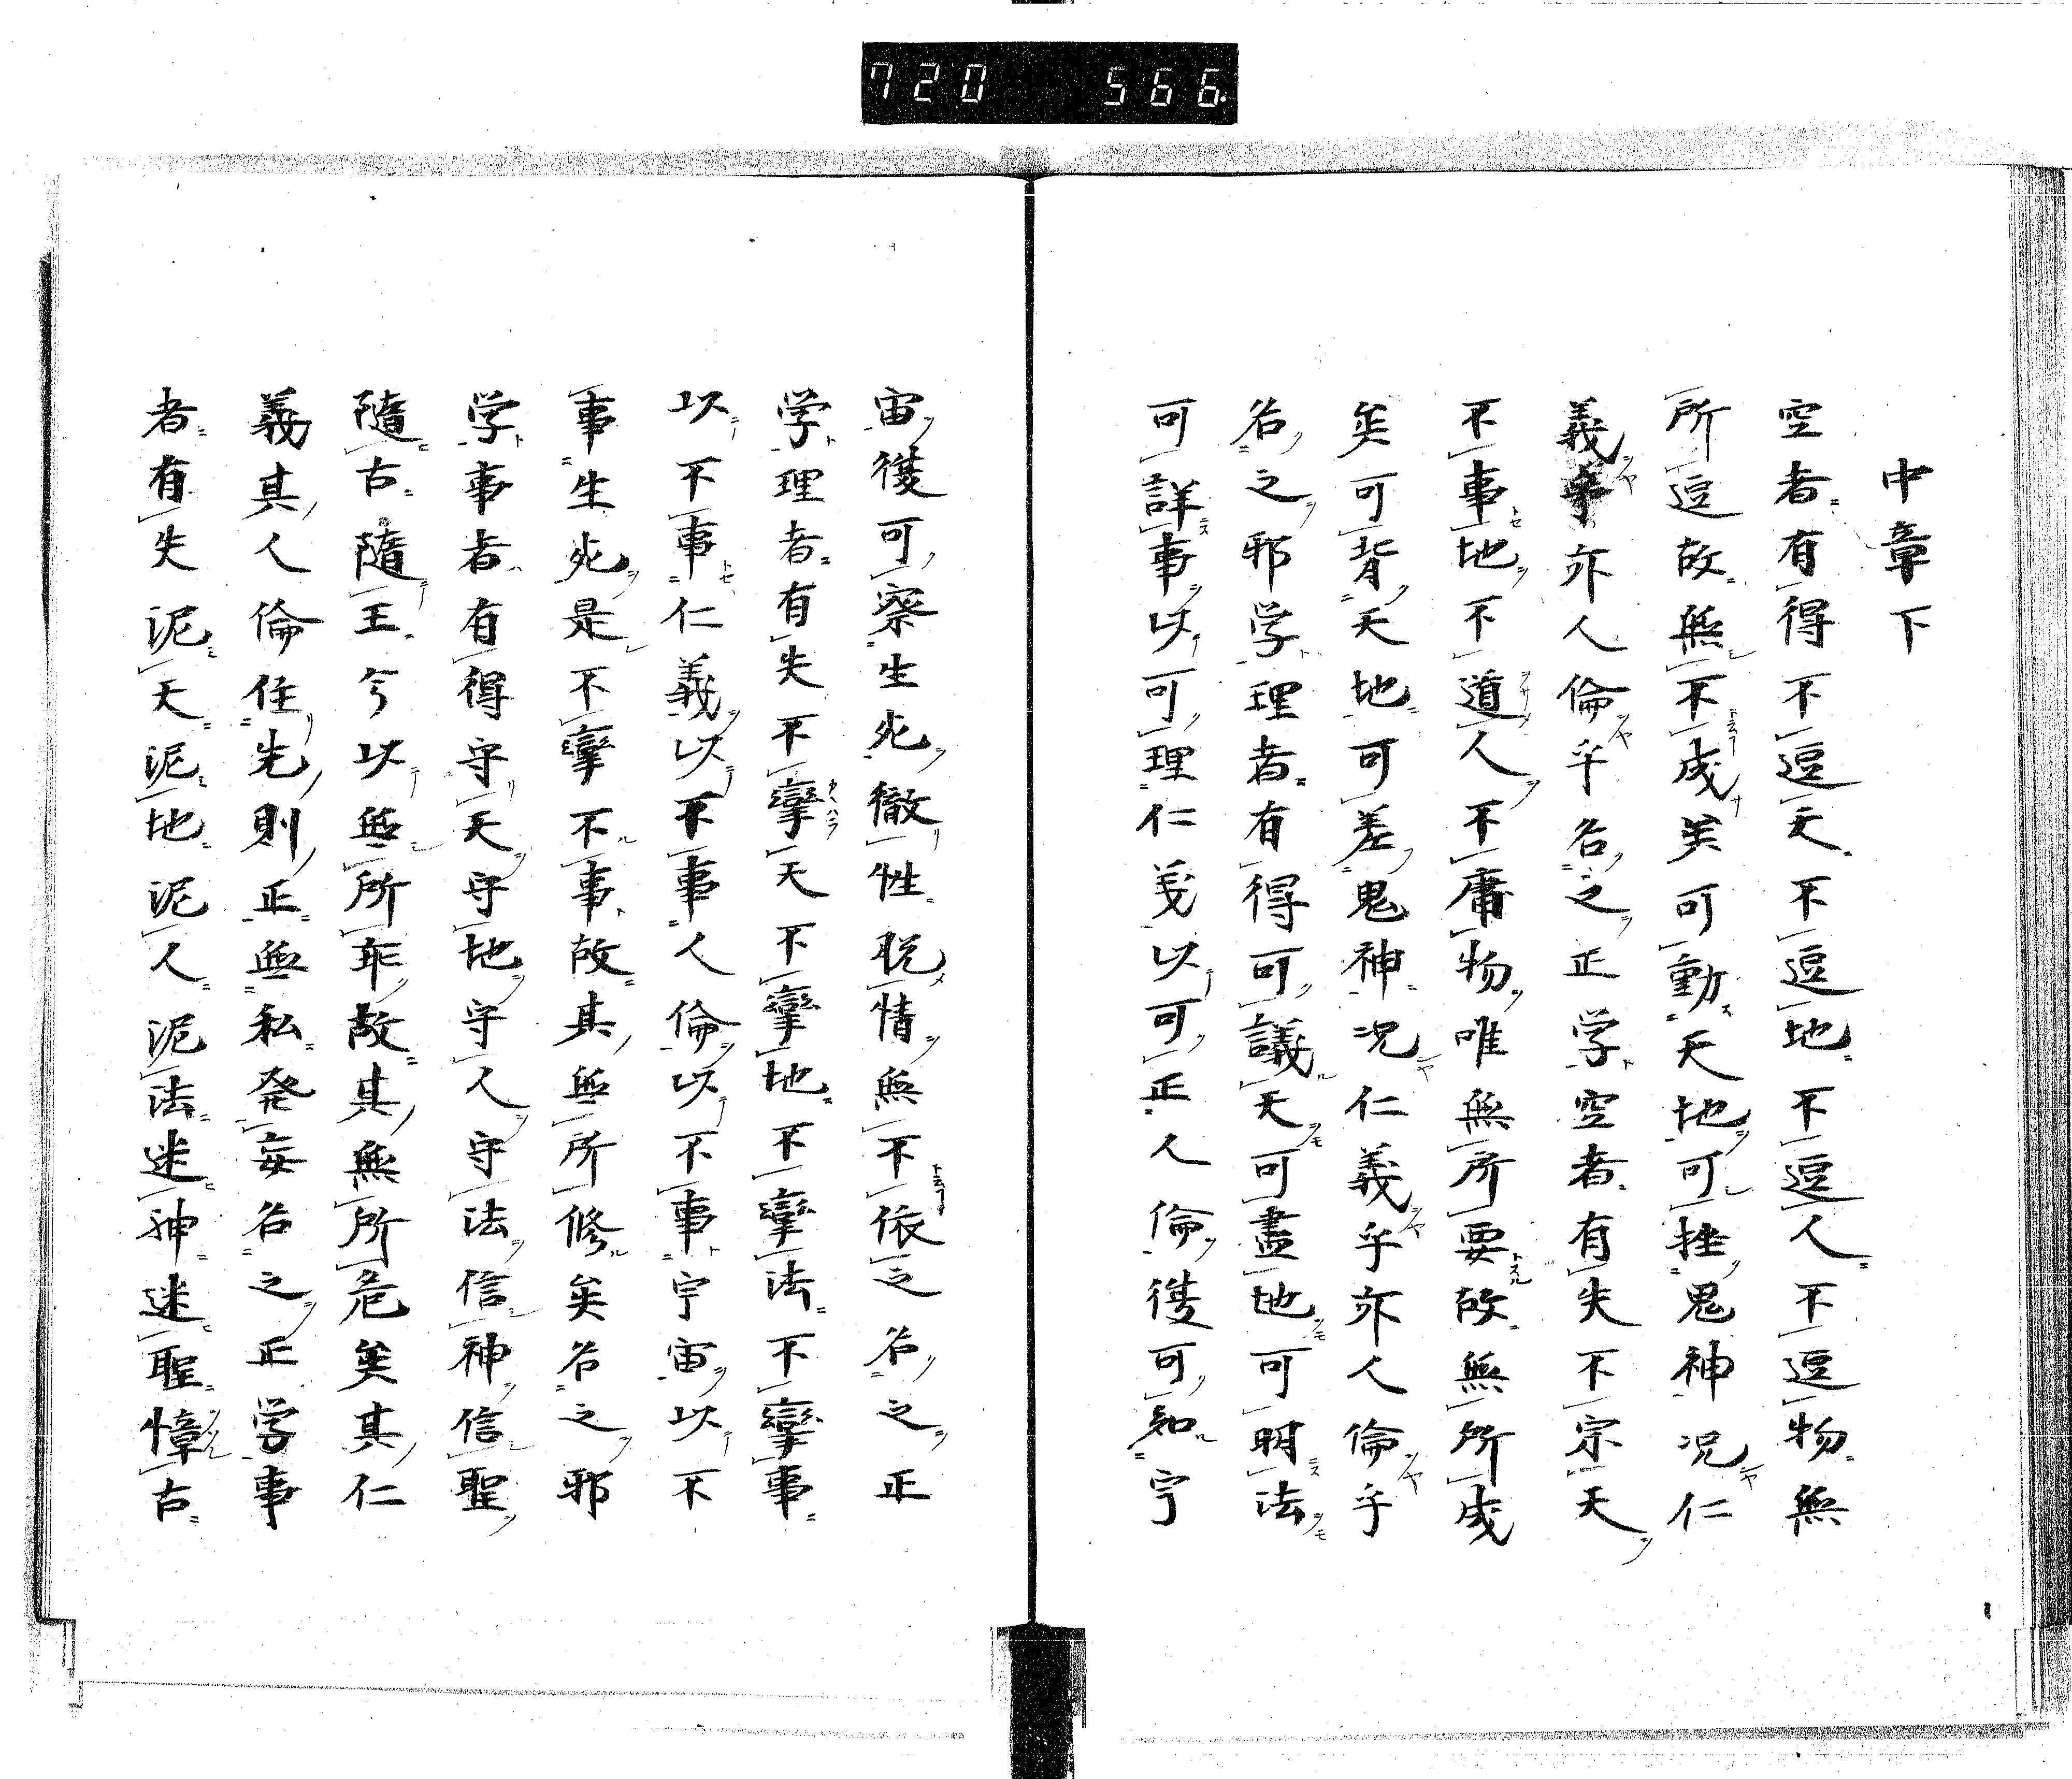 720 566
中章下
空者有得不逗天不逗地不逗人不逗物無
所逗故無不成矣可動天地可挫鬼神況仁
義乎亦人倫乎名之正学空者有失不宗天
不事地不道人不庸物唯無所要故無所成
矣可背天地可差鬼神況仁義乎亦人倫乎
名之邪学理者有得可議天可盡地可明法
可詳事以可理仁義以可正人倫復可知宇
宙復可察生死徹性脱情無不依之名之正
学理者有失不攣天不攣地不攣法不攣事
以不事仁義以不事人倫以不事宇宙以不
事生死是不攣不事故其無所修矣名之邪
学事者有得守天守地守人守法信神信聖
隨古隨王今以無所乖故其無所危矣其仁
義其人倫任先則正無私発妄名之正学事
者有失泥天泥地泥人泥法迷神迷聖慞古